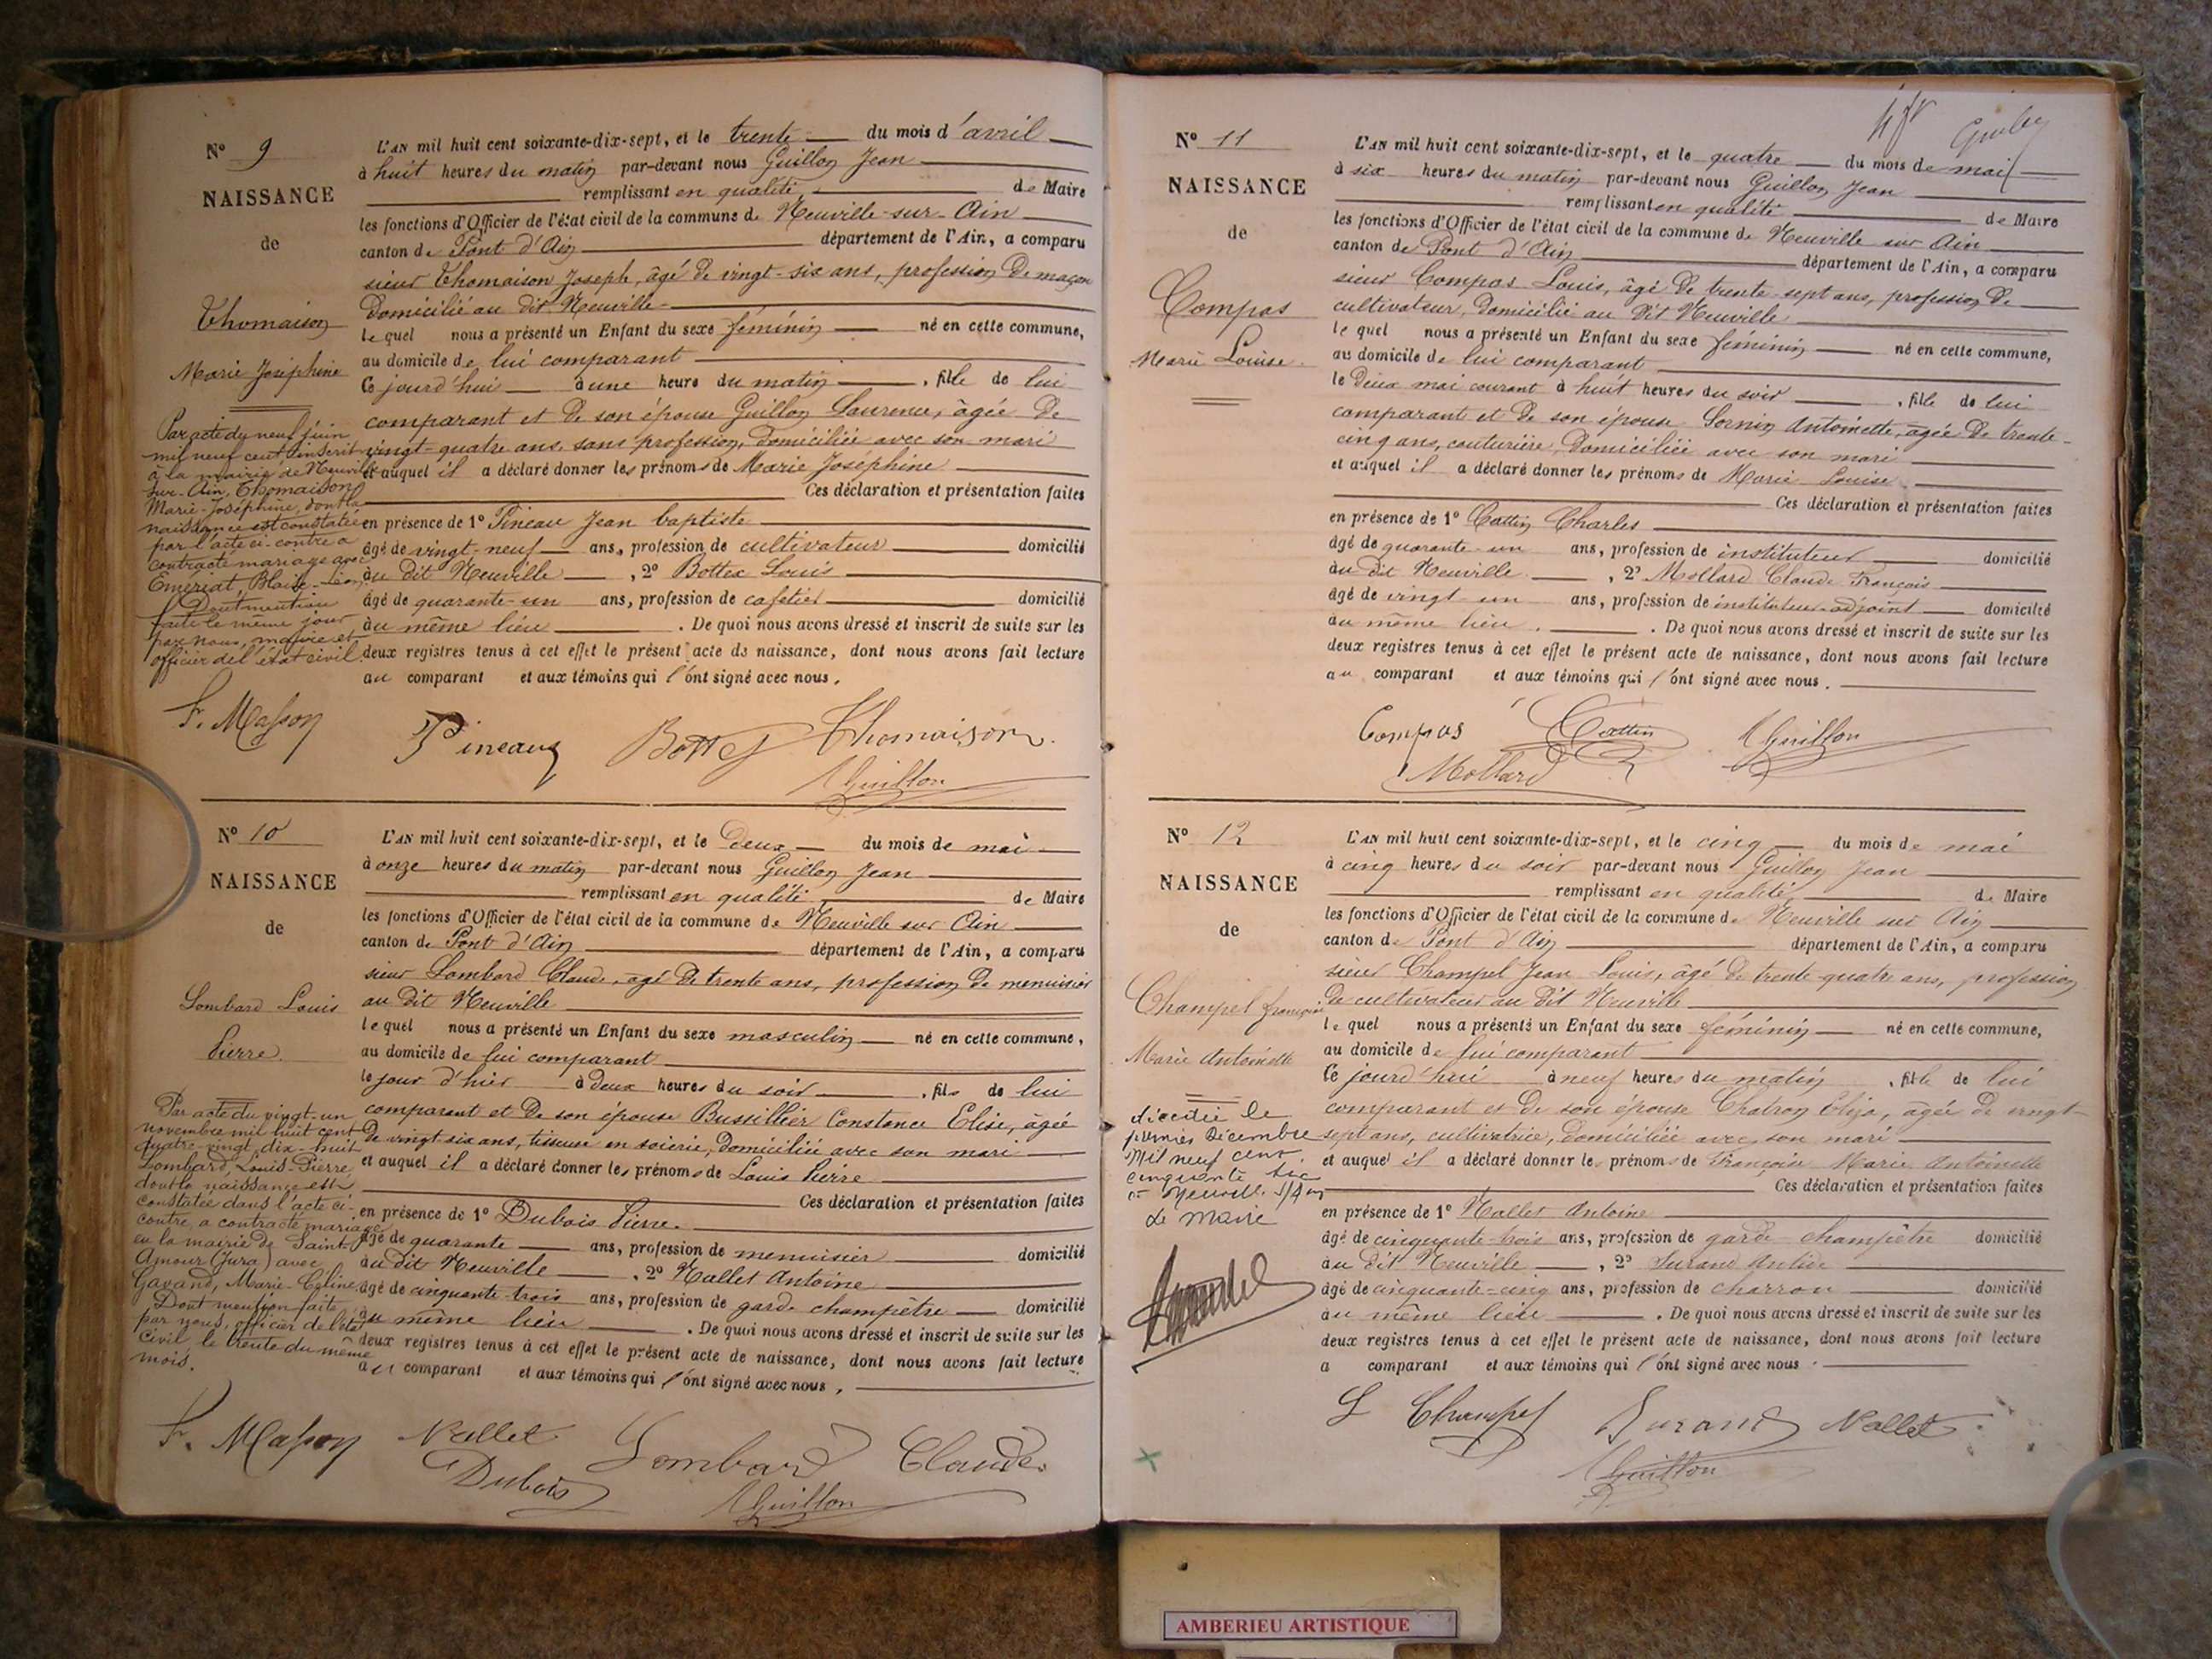 Nº 9
NAISSANCE
de
Thomaison
Marie Joséphine
Par acte du neuf juin
mil neuf cent, inscrit
à la mairie de Neuville
sur-Ain, Thomaison
Marie-Joséphine, dont la
naissance est constatée
par l'acte ci-contre a
contracté mariage avec
Emeriat, Blaise-Léon,
Dont mention
faite le même jour
par nous, maire et
officier de l'état civil.
F. Masson
L'AN mil huit cent soixante-dix-sept, et le trente du mois d'avril
à huit heures du matin par-devant nous Guillon Jean
remplissant en qualité de Maire
les fonctions d'Officier de l'état civil de la commune de Neuville-sur-Ain
canton de Pont d'Ain département de l'Ain, a comparu
sieur Thomaison Joseph, âgé de vingt-six ans, profession de maçon
domicilié au dit Neuville
lequel nous a présenté un Enfant du sexe féminin né en cette commune,
au domicile de lui comparant
Ce jourd'hui à une heure du matin, fille de lui
comparant et de son épouse Guillon Laurence, âgée de
vingt-quatre ans, sans profession, domiciliée avec son mari
et auquel il a déclaré donner les prénoms de Marie Joséphine
Ces déclaration et présentation faites
en présence de 1º Pineau Jean baptiste
âgé de vingt-neuf ans, profession de cultivateur domicilié
au dit Neuville, 2º Bottex Louis
âgé de quarante-un ans, profession de cafetier domicilié
au même lieu. De quoi nous avons dressé et inscrit de suite sur les
deux registres tenus à cet effet le présent acte de naissance, dont nous avons fait lecture
au comparant et aux témoins qui l'ont signé avec nous.
Pineau Bottex Thomaison
Guillon
Nº 10
NAISSANCE
de
Lombard Louis
Pierre
Par acte du vingt-un
novembre mil huit cent
quatre-vingt dix-huit
Lombard, Louis-Pierre
dont la naissance est
constatée dans l'acte ci-
contre, a contracté mariage
en la mairie de Saint-
Amour (Jura) avec
Gavand, Marie-Céline
Dont mention faite
par nous, officier de l'état
civil le trente du même
mois.
F. Masson
L'AN mil huit cent soixante-dix-sept, et le deux du mois de mai
à onze heures du matin par-devant nous Guillon Jean
remplissant en qualité de Maire
les fonctions d'Officier de l'état civil de la commune de Neuville sur Ain
canton de Pont d'Ain département de l'Ain, a comparu
sieur Lombard Claude, âgé de trente ans, profession de menuisier
au dit Neuville
lequel nous a présenté un Enfant du sexe masculin né en cette commune,
au domicile de lui comparant
le jour d'hier à deux heures du soir, fils de lui
comparant et de son épouse Bussillier Constance Elise, âgée
de vingt six ans, tisseuse en soierie, domiciliée avec son mari
et auquel il a déclaré donner les prénoms de Louis Pierre
Ces déclaration et présentation faites
en présence de 1º Dubois Pierre
âgé de quarante ans, profession de menuisier domicilié
au dit Neuville, 2º Nallet Antoine
âgé de cinquante-trois ans, profession de garde champêtre domicilié
au même lieu. De quoi nous avons dressé et inscrit de suite sur les
deux registres tenus à cet effet le présent acte de naissance, dont nous avons fait lecture
au comparant et aux témoins qui l'ont signé avec nous,
Nallet Lombard Claude
Dubois Guillon
Nº 11
NAISSANCE
de
Compas
Marie Louise
L'AN mil huit cent soixante-dix-sept, et le quatre du mois de mai
à six heures du matin par-devant nous Guillon Jean
remplissant en qualité de Maire
les fonctions d'Officier de l'état civil de la commune de Neuville sur Ain
canton de Pont d'Ain département de l'Ain, a comparu
sieur Compas Louis, âgé de trente-sept ans, profession de
cultivateur, domicilié au dit Neuville
lequel nous a présenté un Enfant du sexe féminin né en cette commune,
au domicile de lui comparant
le deux mai courant à huit heures du soir, fille de lui
comparant et de son épouse Sornin Antoinette, âgée de trente-
cinq ans, couturière, domiciliée avec son mari
et auquel il a déclaré donner les prénoms de Marie Louise
Ces déclaration et présentation faites
en présence de 1º Cattin Charles
âgé de quarante-un ans, profession de instituteur domicilié
au dit Neuville, 2º Mollard Claude François
âgé de vingt-un ans, profession de instituteur-adjoint domicilié
au même lieu. De quoi nous avons dressé et inscrit de suite sur les
deux registres tenus à cet effet le présent acte de naissance, dont nous avons fait lecture
au comparant et aux témoins qui l'ont signé avec nous.
Compas Cattin Guillon
Mollard
Nº 12
NAISSANCE
de
Champel françoise
Marie Antoinette
décédée le
premier Décembre
Mil neuf cent
cinquante six
à Neuville s/Ain
Le Maire
L'AN mil huit cent soixante-dix-sept, et le cinq du mois de mai
à cinq heures du soir par-devant nous Guillon Jean
remplissant en qualité de Maire
les fonctions d'Officier de l'état civil de la commune de Neuville sur Ain
canton de Pont d'Ain département de l'Ain, a comparu
sieur Champel Jean Louis, âgé de trente-quatre ans, profession
de cultivateur au dit Neuville
lequel nous a présenté un Enfant du sexe féminin né en cette commune,
au domicile de lui comparant
Ce jourd'hui à neuf heures du matin, fille de lui
comparant et de son épouse Chatron Eliza, âgée de vingt-
sept ans, cultivatrice, domiciliée avec son mari
et auquel il a déclaré donner les prénoms de Françoise Marie Antoinette
Ces déclaration et présentation faites
en présence de 1º Nallet Antoine
âgé de cinquante-trois ans, profession de garde champêtre domicilié
au dit Neuville, 2º Durand
âgé de cinquante-cinq ans, profession de charron domicilié
au même lieu. De quoi nous avons dressé et inscrit de suite sur les
deux registres tenus à cet effet le présent acte de naissance, dont nous avons fait lecture
a comparant et aux témoins qui l'ont signé avec nous.
L Champel Durand Nallet
Guillon
AMBERIEU ARTISTIQUE